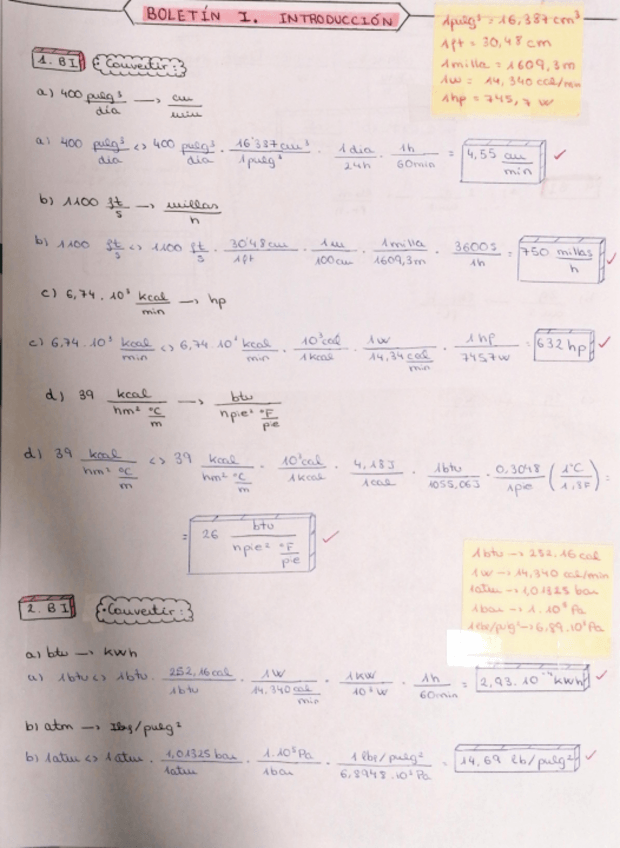 BOLETÍN I. INTRODUCCIÓN
1pulg³ = 16,387 cm³
1ft = 30,48 cm
1milla = 1609,3m
1w = 14,340 cal/min
1hp = 745,7 w
1. BI Convertir:
a) 400 pulg³/día → cm/min
a) 400 pulg³/día <> 400 pulg³/día · 16'387cm³/1pulg³ · 1dia/24h · 1h/60min = 4,55 cm/min
b) 1100 ft/s → millas/h
b) 1100 ft/s <> 1100 ft/s · 30'48cm/1ft · 1m/100cm · 1milla/1609,3m · 3600s/1h = 750 millas/h
c) 6,74·10³ kcal/min → hp
c) 6,74·10³ kcal/min <> 6,74·10³ kcal/min · 10³cal/1kcal · 1w/14,34 cal/min · 1hp/745,7w = 632 hp
d) 39 kcal/hm² °C/m → btu/hpie² °F/pie
d) 39 kcal/hm² °C/m <> 39 kcal/hm² °C/m · 10³cal/1kcal · 4,18J/1cal · 1btu/1055,06J · 0,3048/1pie (1°C/1,8F) =
= 26 btu/hpie² °F/pie
1btu → 252,16 cal
1w → 14,340 cal/min
1atm → 1,01325 bar
1bar → 1·10⁵ Pa
1lbf/pulg² → 6,89·10³Pa
2. BI Convertir:
a) btu → kwh
a) 1btu <> 1btu · 252,16cal/1btu · 1W/14,340 cal/min · 1KW/10³W · 1h/60min = 2,93·10⁻⁴ kwh
b) atm → lbf/pulg²
b) 1atm <> 1atm · 1,01325 bar/1atm · 1·10⁵Pa/1bar · 1lbf/pulg²/6,8948·10³Pa = 14,69 lb/pulg²